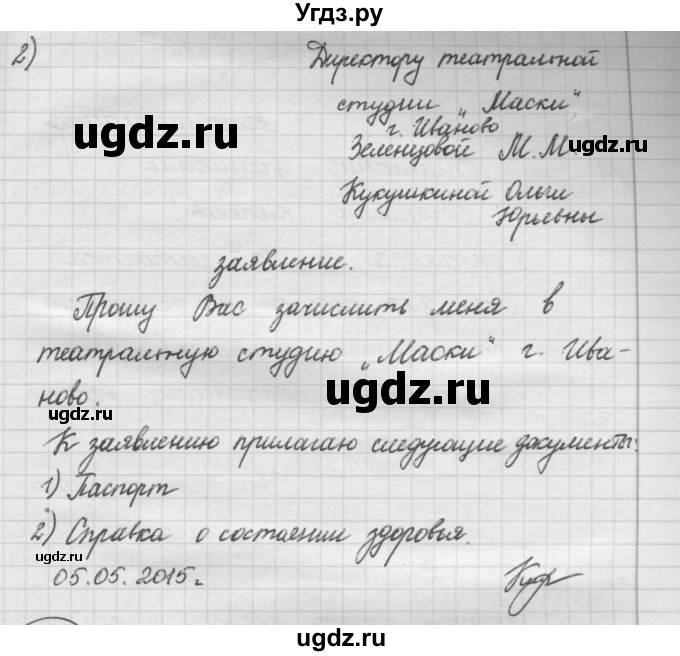 Угдз.ру
2) Директору театральной
студии „Маски",
г. Иваново
Зеленцовой М.М.
Кукушкиной Ольги
Юрьевны
заявление.
Прошу Вас зачислить меня в
театральную студию „Маски" г. Ива-
ново.
К заявлению прилагаю следующие документы:
1) Паспорт
2) Справка о состоянии здоровья.
05.05.2015г.
ugdz.ru
ugdz.ru
ugdz.ru
ugdz.ru
ugdz.ru
ugdz.ru